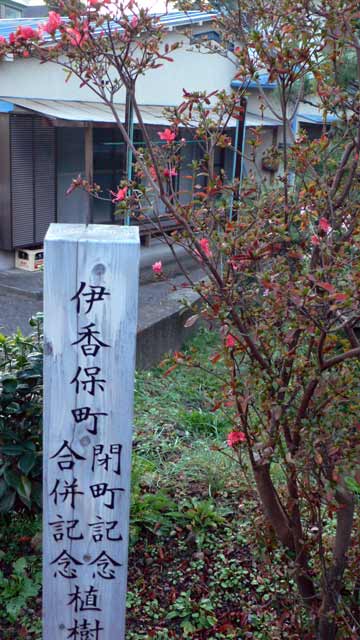 伊香保町
閉町記念
合併記念
植樹